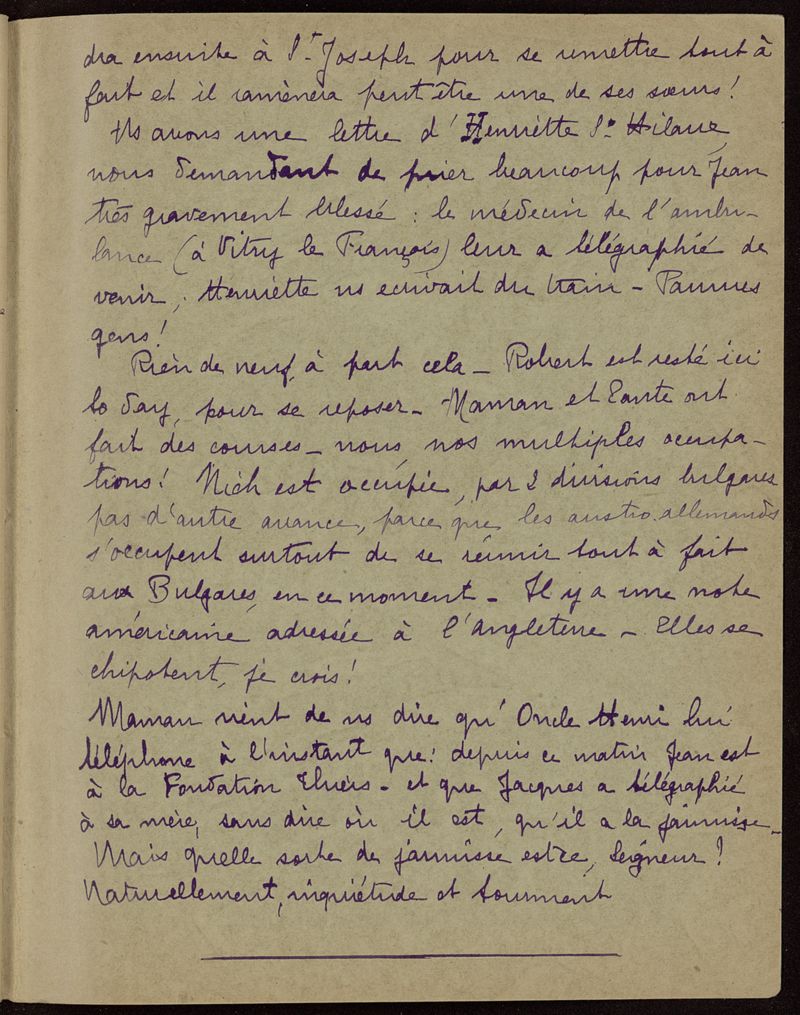 dra ensuite à St Joseph pour se remettre tout à
fait et il ramènera peut être une de ses sœurs !
Ns avons une lettre d'Henriette St Hilaire,
nous demandant de prier beaucoup pour Jean
très gravement blessé : le médecin de l'ambu-
lance (à Vitry le François) leur a télégraphié de
venir ; Henriette ns écrivait du train – Pauvres
gens !
Rien de neuf, à part cela – Robert est resté ici
to day, pour se reposer – Maman et Tante ont
fait des courses – nous, nos multiples occupa-
tions ! Nich est occupée, par 2 divisions bulgares
pas d'autre avance, parce que les austro-allemands
s'occupent surtout de se réunir tout à fait
aux Bulgares, en ce moment – Il y a une note
américaine adressée à l'Angleterre – Elles se
chipotent, je crois !
Maman vient de ns dire qu'Oncle Henri lui
téléphone à l'instant que : depuis ce matin Jean est
à la Fondation Thiers – et que Jacques a télégraphié
à sa mère, sans dire où il est, qu'il a la jaunisse –
Mais quelle sorte de jaunisse est ce, Seigneur ?
Naturellement, inquiétude et tourment